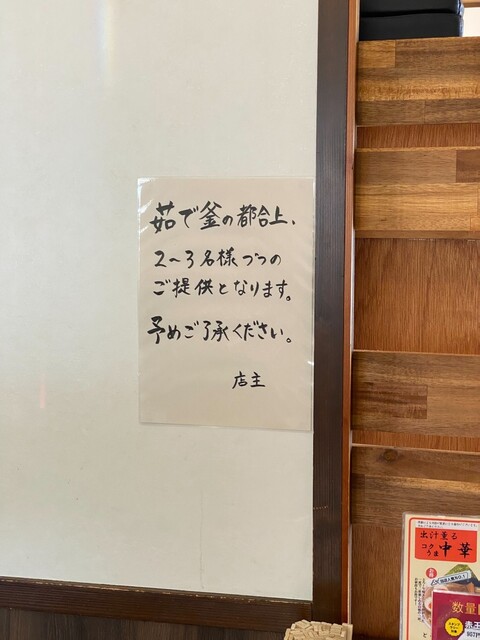 茹で釜の都合上、
2〜3名様づつの
ご提供となります。
予めご了承ください。
店主
出汁薫る
コクうま 中華
数量